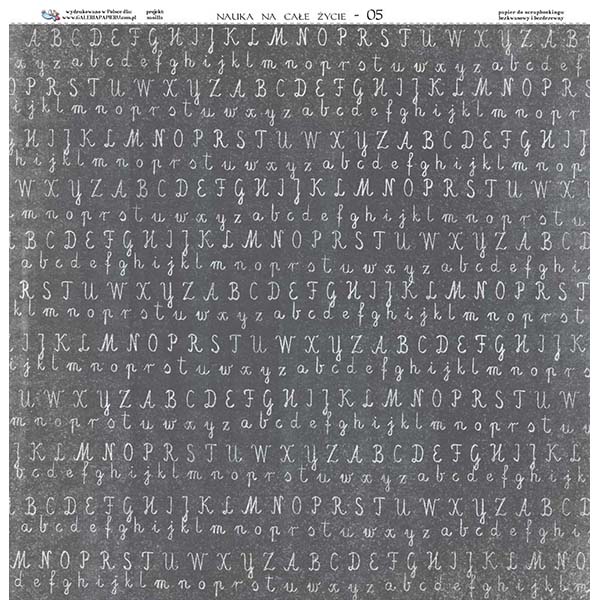 wydrukowano w Polsce dla:
www.GALERIAPAPIERU.com.pl
projekt
NAUKA NA CAŁE ŻYCIE - 05
papier do scrapbookingu
bezkwasowy i bezdrzewny
A B C D E F G H I J K L M N O P R S T U W X Y Z A B
w x y z a b c d e f g h i j k l m n o p r s t u w x y z a b c d e f
O P R S T U W X Y Z A B C D E F G H I J K L M N O P R S T
i j k l m n o p r s t u w x y z a b c d e f g h i j k l m n o p r
G H I J K L M N O P R S T U W X Y Z A B C D E F G H I J
h i j k l m n o p r s t u w x y z a b c d e f g h i j k l m n o p
W X Y Z A B C D E F G H I J K L M N O P R S T U W X
m n o p r s t u w x y z a b c d e f g h i j k l m n o p r s t u
B C D E F G H I J K L M N O P R S T U W X Y Z A B C D
a b c d e f g h i j k l m n o p r s t u w x y z a b c d e f g h i
R S T U W X Y Z A B C D E F G H I J K L M N O P R S T
m n o p r s t u w x y z a b c d e f g h i j k l m n o p r s t u
I J K L M N O P R S T U W X Y Z A B C D E F G H I J K
e f g h i j k l m n o p r s t u w x y z a b c d e f g h i j k l m
U W X Y Z A B C D E F G H I J K L M N O P R S T U W
t u w x y z a b c d e f g h i j k l m n o p r s t u w x y z a b c
J K L M N O P R S T U W X Y Z A B C D E F G H I J K L
b c d e f g h i j k l m n o p r s t u w x y z a b c d e f g h i j k
B C D E F G H I J K L M N O P R S T U W X Y Z A B C D
a b c d e f g h i j k l m n o p r s t u w x y z a b c d e f g h i
M N O P R S T U W X Y Z A B C D E F G H I J K L M N O P
d e f g h i j k l m n o p r s t u w x y z a b c d e f g h i j k l m n o